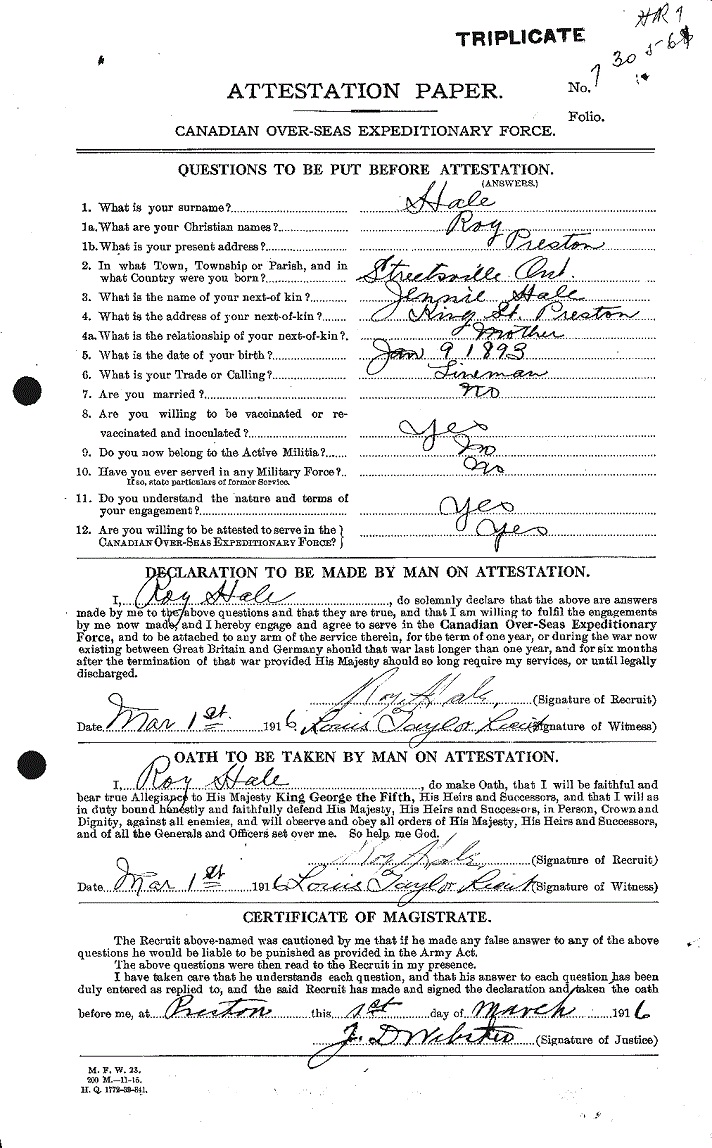 TRIPLICATE
ATTESTATION PAPER.
No. 730561
Folio.
CANADIAN OVER-SEAS EXPEDITIONARY FORCE.
QUESTIONS TO BE PUT BEFORE ATTESTATION.
(ANSWERS.)
1. What is your surname? Hale
1a. What are your Christian names? Roy
1b. What is your present address? Preston
2. In what Town, Township or Parish, and in
what Country were you born? Streetsville Ont.
3. What is the name of your next-of kin? Jennie Hale
4. What is the address of your next-of-kin? King St. Preston
4a. What is the relationship of your next-of-kin? Mother
5. What is the date of your birth? Jan 9 1893
6. What is your Trade or Calling? Lineman
7. Are you married? no
8. Are you willing to be vaccinated or re-
vaccinated and inoculated? Yes
9. Do you now belong to the Active Militia? No
10. Have you ever served in any Military Force? No
If so, state particulars of former Service.
11. Do you understand the nature and terms of
your engagement? Yes
12. Are you willing to be attested to serve in the }
CANADIAN OVER-SEAS EXPEDITIONARY FORCE? } Yes
DECLARATION TO BE MADE BY MAN ON ATTESTATION.
I, Roy Hale, do solemnly declare that the above are answers
made by me to the above questions and that they are true, and that I am willing to fulfil the engagements
by me now made, and I hereby engage and agree to serve in the Canadian Over-Seas Expeditionary
Force, and to be attached to any arm of the service therein, for the term of one year, or during the war now
existing between Great Britain and Germany should that war last longer than one year, and for six months
after the termination of that war provided His Majesty should so long require my services, or until legally
discharged.
Roy Hale (Signature of Recruit)
Date Mar 1st. 1916 Louis Taylor Lieut (Signature of Witness)
OATH TO BE TAKEN BY MAN ON ATTESTATION.
I, Roy Hale, do make Oath, that I will be faithful and
bear true Allegiance to His Majesty King George the Fifth, His Heirs and Successors, and that I will as
in duty bound honestly and faithfully defend His Majesty, His Heirs and Successors, in Person, Crown and
Dignity, against all enemies, and will observe and obey all orders of His Majesty, His Heirs and Successors,
and of all the Generals and Officers set over me. So help me God.
Roy Hale (Signature of Recruit)
Date Mar 1st 1916 Louis Taylor Lieut (Signature of Witness)
CERTIFICATE OF MAGISTRATE.
The Recruit above-named was cautioned by me that if he made any false answer to any of the above
questions he would be liable to be punished as provided in the Army Act.
The above questions were then read to the Recruit in my presence.
I have taken care that he understands each question, and that his answer to each question has been
duly entered as replied to, and the said Recruit has made and signed the declaration and taken the oath
before me, at Preston this 1st day of March 1916
J. D Webster (Signature of Justice)
M. F. W. 23.
200 M.—11-15.
H. Q. 1772-39-841.